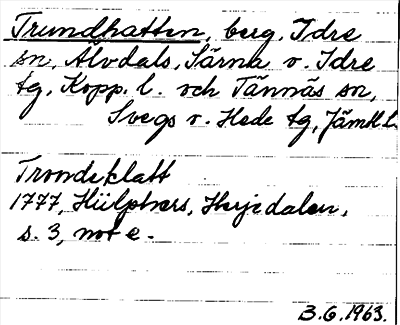 Trundhatten, berg, Idre
sn, Älvdals, Särna o. Idre
tg, Kopp. l. och Tännäs sn,
Svegs o. Hede tg, Jämtl.l.
Trondeklatt
1777, Hülphers, Herjedalen,
s. 3, not e.
3.6.1963.